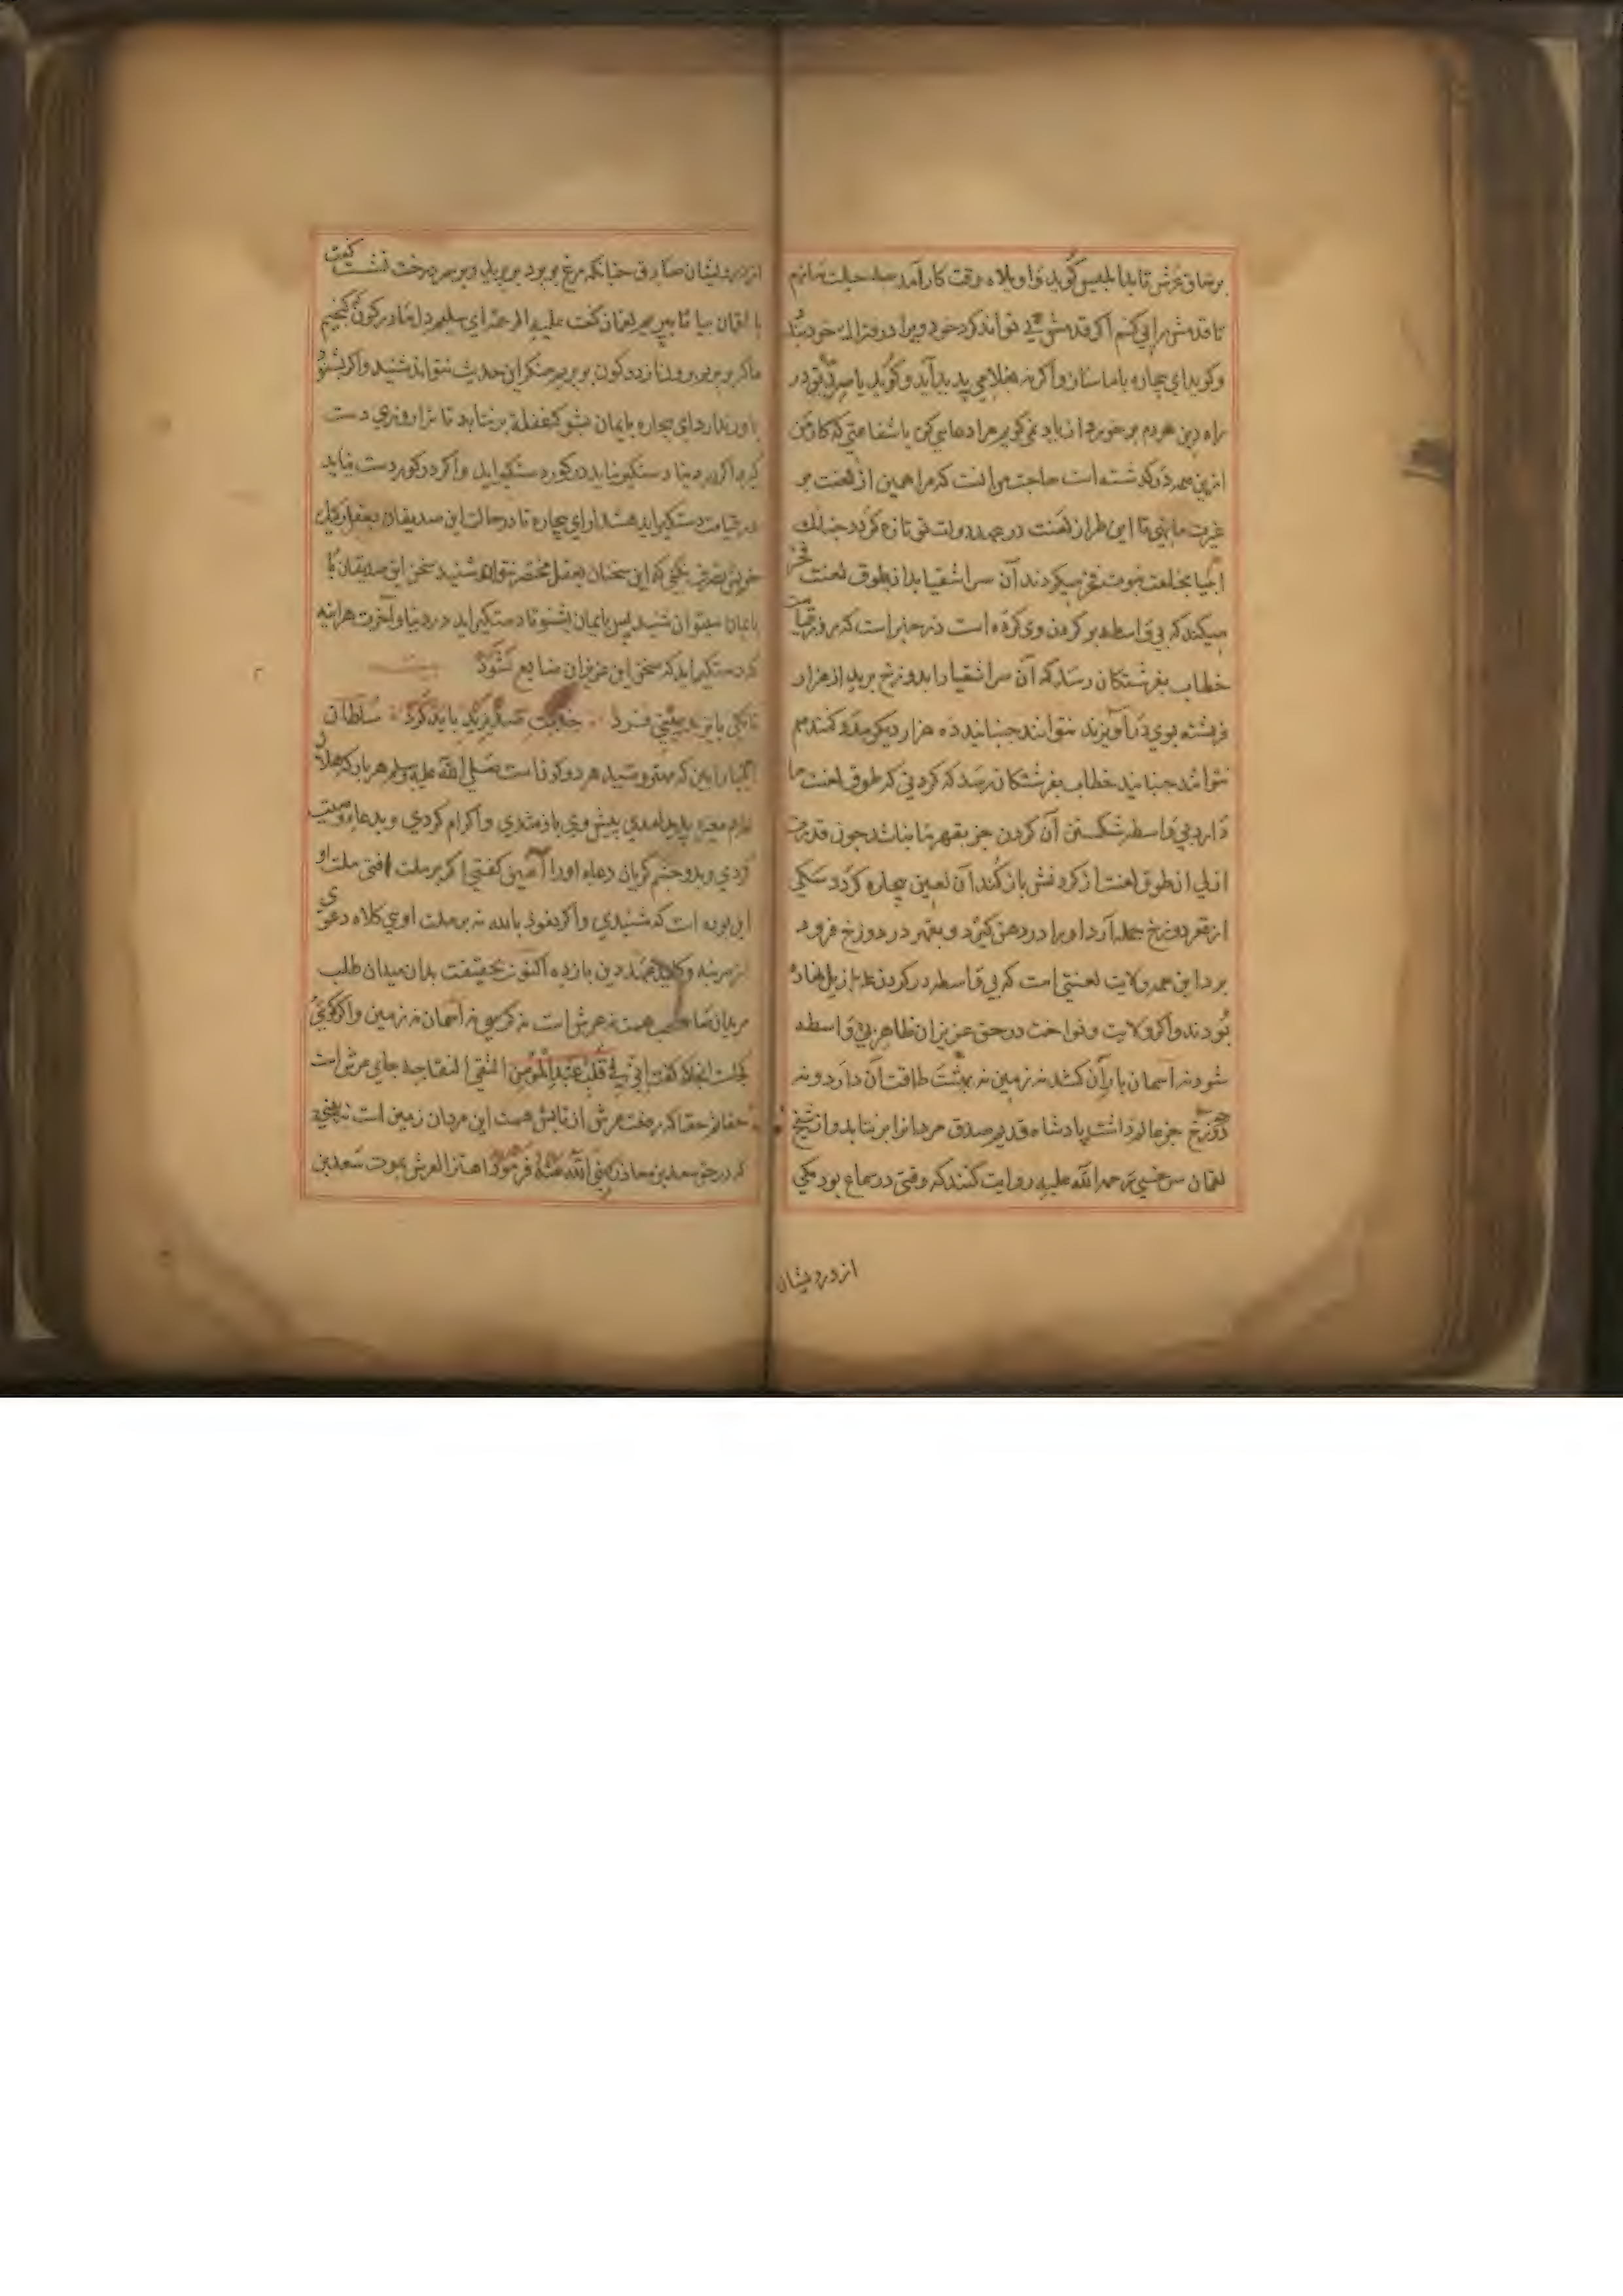 بر ساق عرش تا بد ابلیس گوید وا ویلاه وقت کار آمد حیلت سازیم
تا قدمش را پی کنیم اگر قدمش پی تواند کرد خود ویرا در فتراک خود بندد
و گوید ای بیچاره با ما ستان و اگر نه پدید آید و گوید یا
راه دین هر دم بر خور دعایی کن یا شفاعتی که کار من
ازین همه در گذشته است حاجت من آنست که مرا همین از لعنت بر
غیرت ما بینی تا این طراز لعنت در عهد دولت تو تازه گردد چنانک
انبیا بخلعت نبوت فخر میکردند آن سر اشقیا بدان طوق لعنت فخر
میکند که بی واسطه بر گردن وی کرده است در خبر است که روز قیامت
خطاب بفرشتگان رسد که آن سر اشقیا را بدوزخ برید از هزار
فرشته بوی در آویزند نتوانند جنبانید ده هزار دیگر مدد کنند هم
نتوانند جنبانید خطاب بفرشتگان رسد که گردنی که طوق لعنت ما
دارد بی واسطه شکستن آن گردن جز بقهر ما نباشد چون قدرت
ازلی آن طوق لعنت از گردنش باز کند آن لعین بیچاره گردد سگی
از قعر دوزخ حمله آرد او را در دهن گیرد و بقهر در دوزخ فرود
برد این همه ولایت لعنتی است که بی واسطه در گردن عزازیل نهاده
بودند و اگر ولایت و نواخت در حق عزیزان ظاهر بی واسطه
شود نه آسمان بار آن کشد نه زمین نه بهشت طاقت آن دارد و نه
دوزخ جز عالم پادشاه قدیم صدق مردانرا بر نتابد و از شیخ
لقمان سرخسی رحمة الله علیه روایت کنند که وقتی در سماع بود یکی
از درویشان
از درویشان صادق چنانکه مرغ بر پرد بر پرید و بر سر درخت نشست گفت
یا لقمان بیا تا بپریم لقمان گفت علیه الرحمة ای سلیم دل ما در کون گنجیم
ما گر بپریم برون از دو کون بپریم منکر این حدیث نتواند شنید و اگر بشنود
باور ندارد ای بیچاره بایمان بشنو که عقل بر نتابد تا ترا روزی دست
گیرد اگر در دنیا دستگیر نیاید در گور دستگیر آید و اگر در گور دست نیاید
در قیامت دستگیر آید هشدار ای بیچاره تا در حالت این صدیقان بعقل رکیک
خویش تصرف نکنی که این سخنان بعقل مختصر نتواند شنید سخن این صدیقان را
بایمان میتوان شنید پس بایمان بشنو تا دستگیر آید در دنیا و آخرت هر آینه
که دستگیر آید که سخن این عزیزان ضایع نشود بیت
تا یکی بایزید بینی فرد خدمت صد یزید باید کرد سلطان
انبیا را ببین که مهتر و سید هر دو کون است صلی الله علیه و سلم هر بار که هلال
غلام مغیره پدید آمدی پیش وی باز شدی و اکرام کردی و بدعا وصیت
کردی و بدو چشم گریان دعاء او را آمین گفتی اگر بر ملت ملت او
این بوده است که شنیدی و اگر نعوذ بالله نه بر ملت اویی کلاه دعوی
از سر بنه و دین باز ده اکنون بحقیقت بدان میدان طلب
مریدان صاحب همت نه عرش است نه کرسی نه آسمان نه زمین و اگر گویی
کجاست آنجا که گفت انی فی قلب عبد المؤمن التقی النقی چه جای عرش است
حقا ثم حقا که رفعت عرش از تابش همت این مردان زمین است نه بینی
که در حق سعد بن معاذ رضی الله عنه فرمود اهتز العرش بموت سعد بن